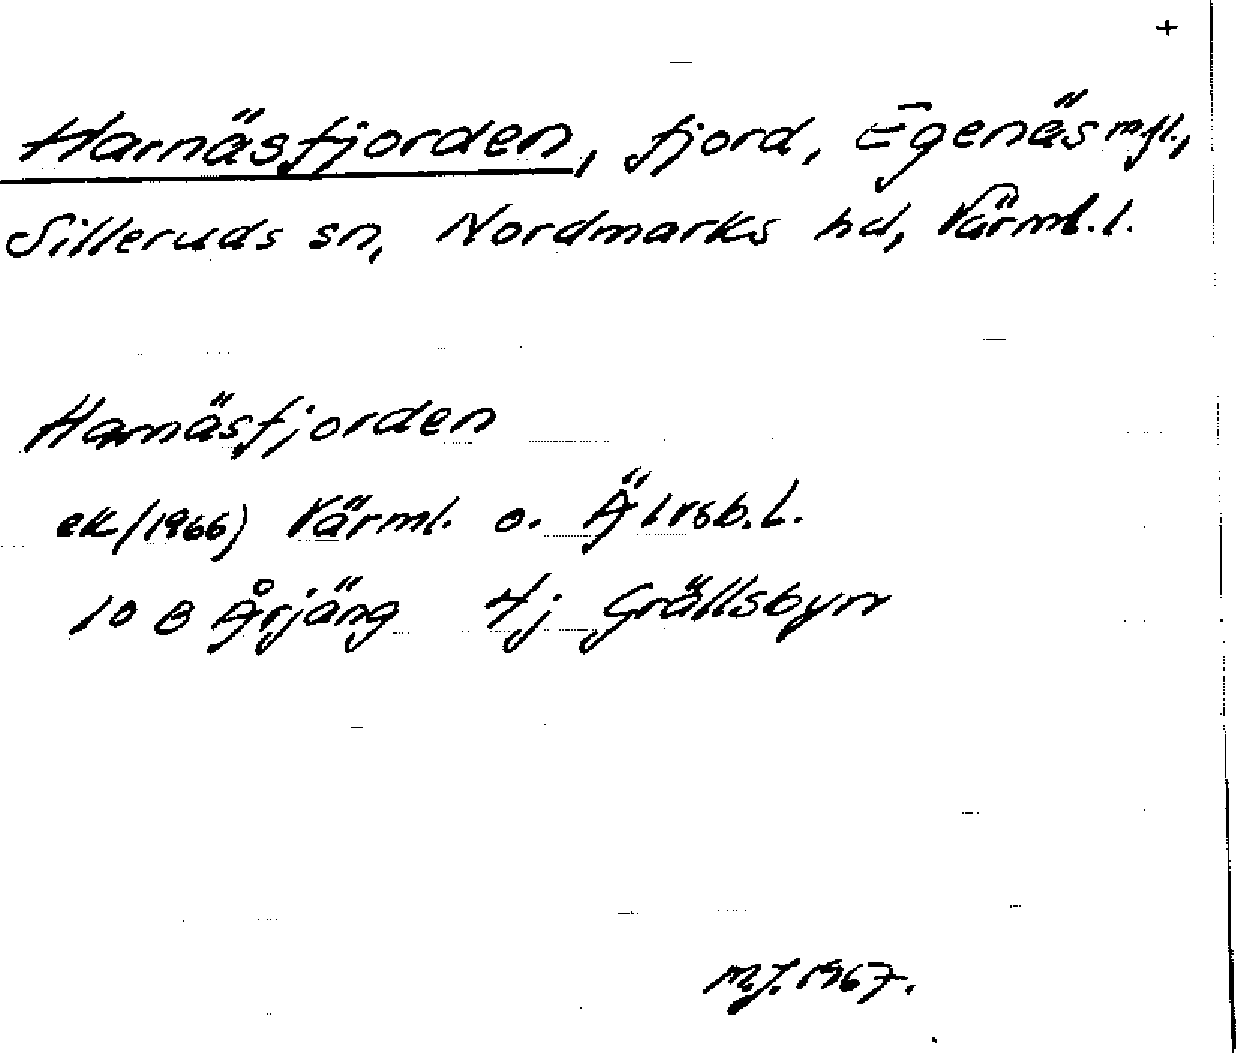 +
Harnäsfjorden, fjord, Egenäs m.fl.,
Silleruds sn, Nordmarks hd, Värml. l.
Harnäsfjorden
ek/1966) Värml. o. Älvsb. L.
10 B Årjäng 4j Grällsbyn
M.J. 1967.